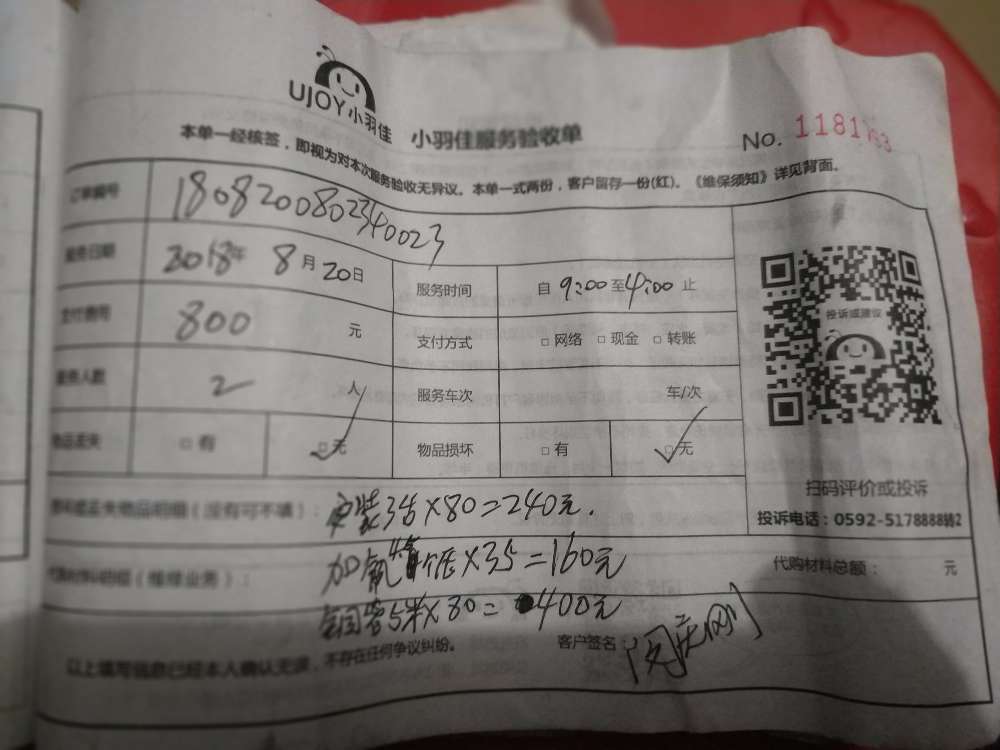 UJOY小羽佳
小羽佳服务验收单
No. 1181763
本单一经核签，即视为对本次服务验收无异议。本单一式两份，客户留存一份(红)。《维保须知》详见背面。
订单编号 1808200802340023
服务日期 2018年 8月20日 服务时间 自 9:00 至 4:00 止
支付费用 800 元 支付方式 □网络 □现金 □转账
服务人数 2 人 服务车次 车/次
物品丢失 □有 □无 物品损坏 □有 □无
投诉或建议
扫码评价或投诉
投诉电话：0592-5178888转2
（没有可不填）： 安装3台×80=240元.
（维修业务）： 加氟 ×35=160元
代购材料总额： 元
铜管5米×80=400元
以上填写信息已经本人确认无误，不存在任何争议纠纷。 客户签名：